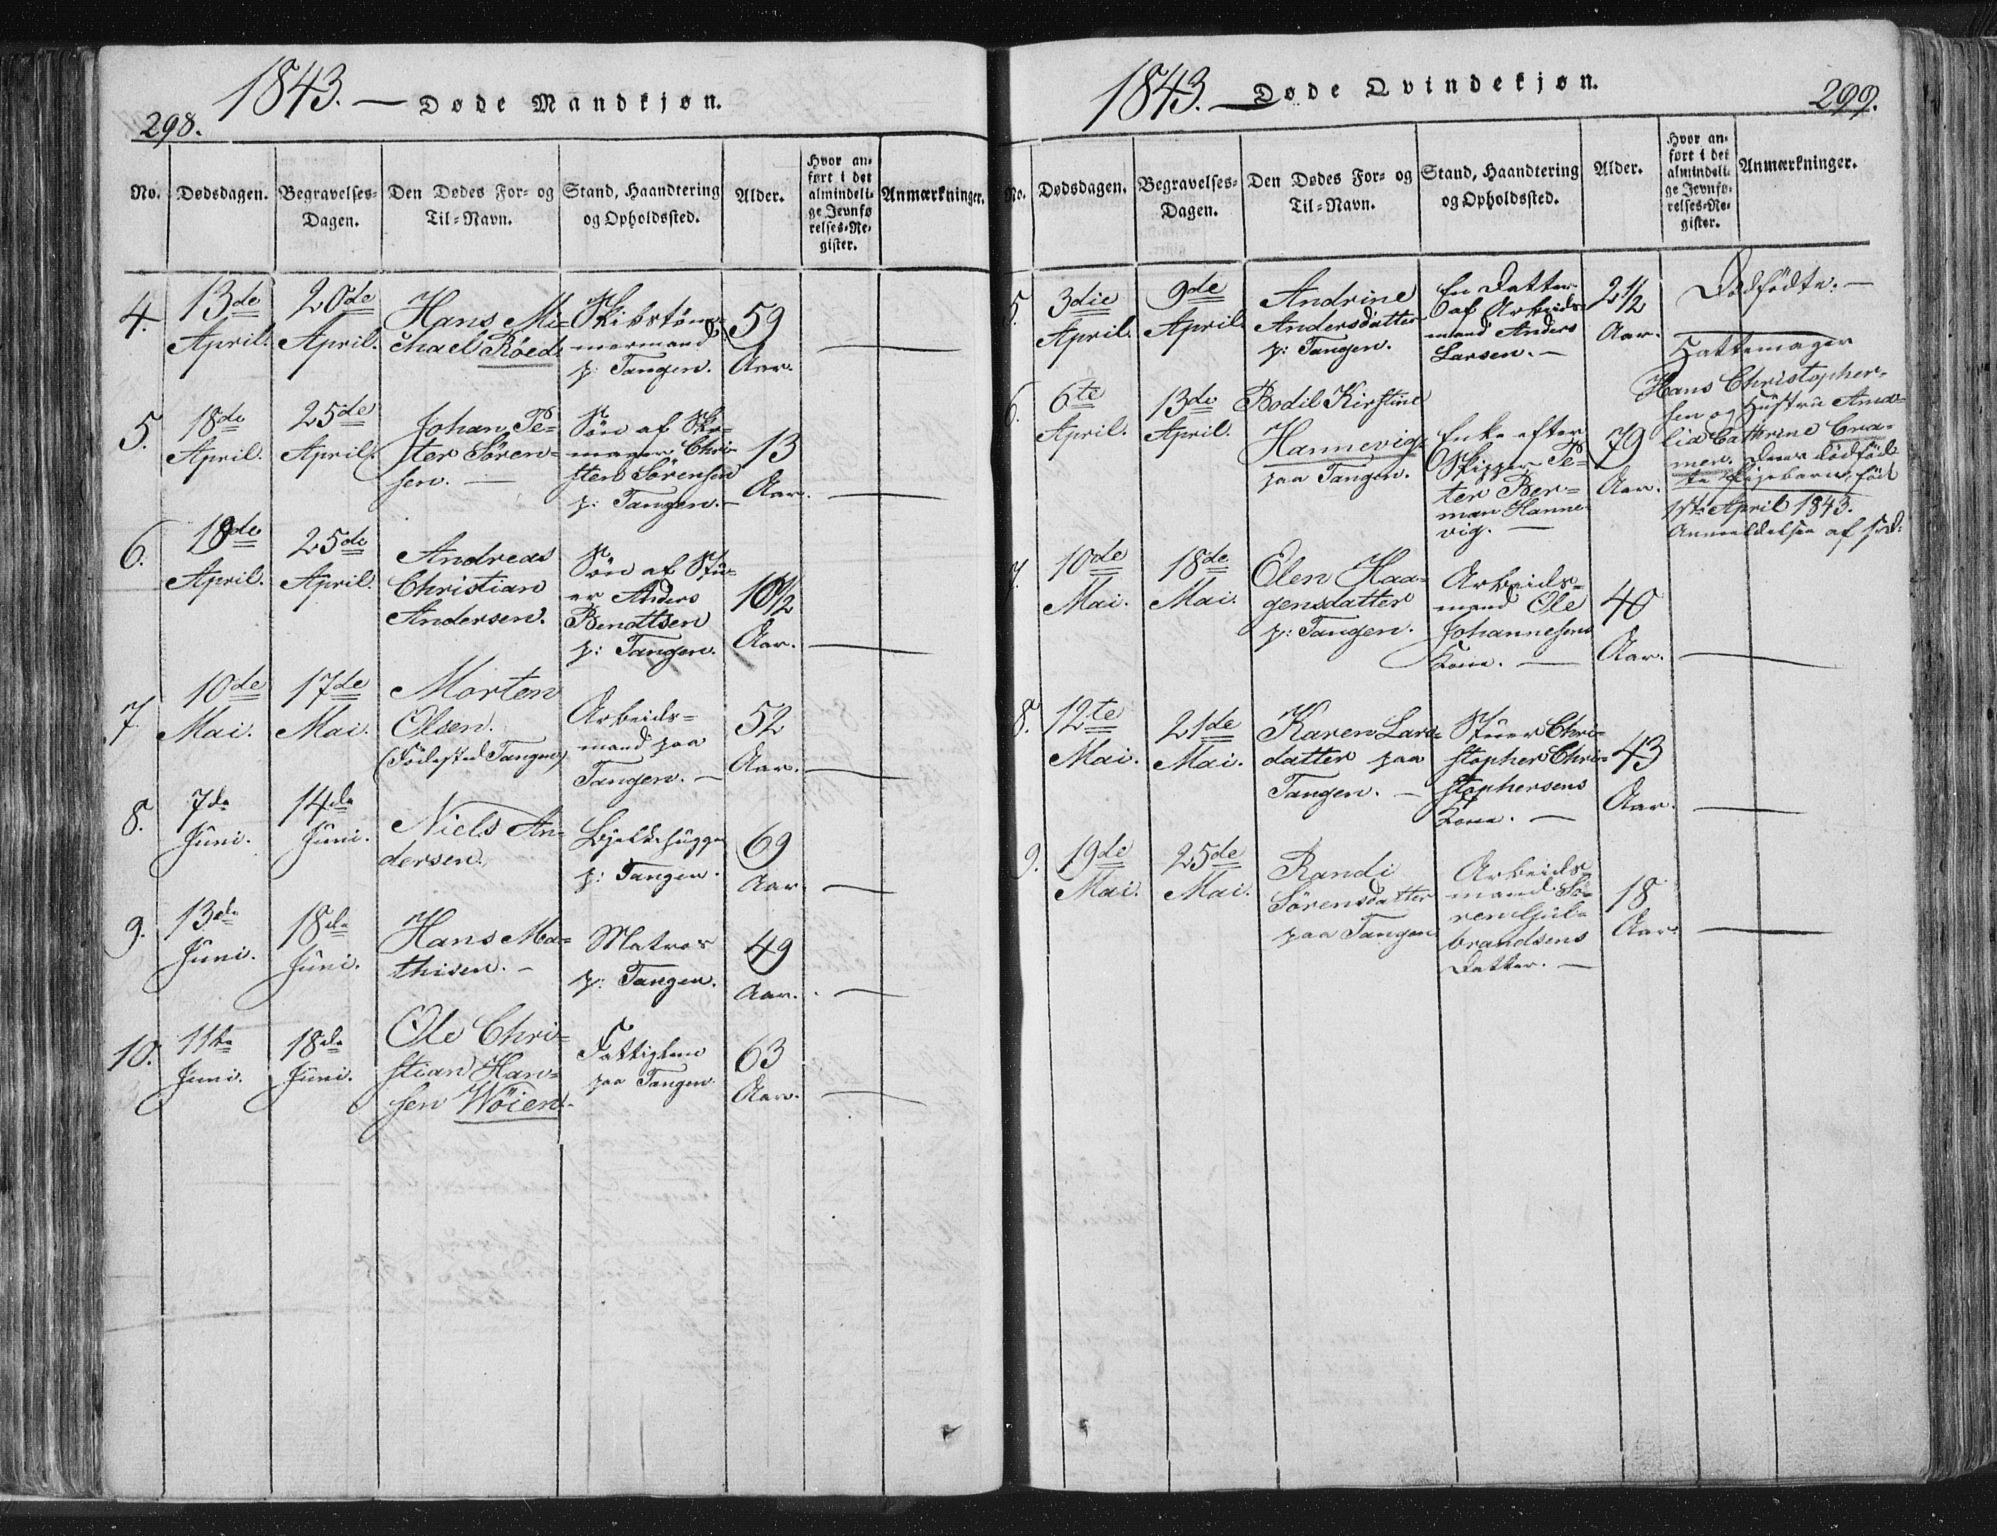 298.
1843. — Døde Mandkjøn.
No.
Dødsdagen.
Begravelses-
Dagen.
Den Dødes For- og
Til-Navn.
Stand, Haandtering
og Opholdssted.
Alder.
Hvor an-
ført i det
almindeli-
ge Jevnfø
relses-Re-
gister.
Anmærkninger.
4.
13de
April.
20de
April.
Hans Mi-
chael Röed.
Skibstöm-
mermand
p: Tangen.
59
Aar.
5.
18de
April.
25de
April.
Johan Pe-
ter Sören-
sen. —
Sön af Sko-
mager Chri-
sten Sörensen
p: Tangen. —
13
Aar.
6.
18de
April.
25de
April.
Andreas
Christian
Andersen.
Sön af Stu-
er Anders
Bendtsen
p: Tangen.
10 1/2
Aar.
7
10de
Mai.
17de
Mai.
Morten
Olsen.
(Födested Tangen)
Arbeids-
mand paa
Tangen. —
52
Aar.
8.
7de
Juni.
14de
Juni.
Niels An-
dersen.
Bjelkehugger
p: Tangen.
69
Aar.
9.
13de
Juni.
18de
Juni.
Hans Ma-
thisen. —
Matros
p: Tangen.
49
Aar.
10.
11te
Juni.
18de
Juni.
Ole Chri-
stian Han-
sen Wöien.
Fattiglem
paa Tangen.
63
Aar.
1843. — Døde Qvindekjøn.
299.
No.
Dødsdagen.
Begravelses-
Dagen.
Den Dødes For- og
Til-Navn.
Stand, Haandtering
og Opholdssted.
Alder.
Hvor an-
ført i det
almindeli-
ge Jevnfø-
relses-Re-
gister.
Anmærkninger.
5.
3die
April.
9de
April.
Andrine
Andersdatter
p: Tangen.
En Datter
af Arbeids-
mand Anders
Larsen. —
2 1/2
Aar.
Dödfödte. —
Hattemager
Hans Christopher-
sen og Hustru Ama-
lia Cathrine Cra-
mer. Deres dödföd-
te Pigebarn, födt
1ste April 1843.
Anmeldelsen af
6.
6te
April.
13de
April.
Bodil Kirstine
Hannevig
paa Tangen.
Enke efter
Skipper Pe-
ter Ber-
man Hanne-
vig. —
79
Aar.
7.
10de
Mai.
18de
Mai.
Elen Haa-
gensdatter
p: Tangen.
Arbeids-
mand Ole
Johannesens
Kone. —
40
Aar.
8.
12te
Mai.
21de
Mai.
Karen Lars-
datter paa
Tangen. —
Stuer Chri-
stopher Chri-
stophersens
Kone. —
43
Aar.
9.
19de
Mai.
25de
Mai.
Randi
Sörensdatter
paa Tangen
Arbeids-
mand Sö-
ren Gul-
brandsens
Datter. —
18
Aar.